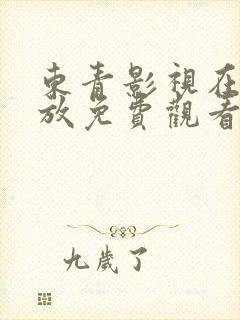 東青影視在
放免費觀看
九歲了